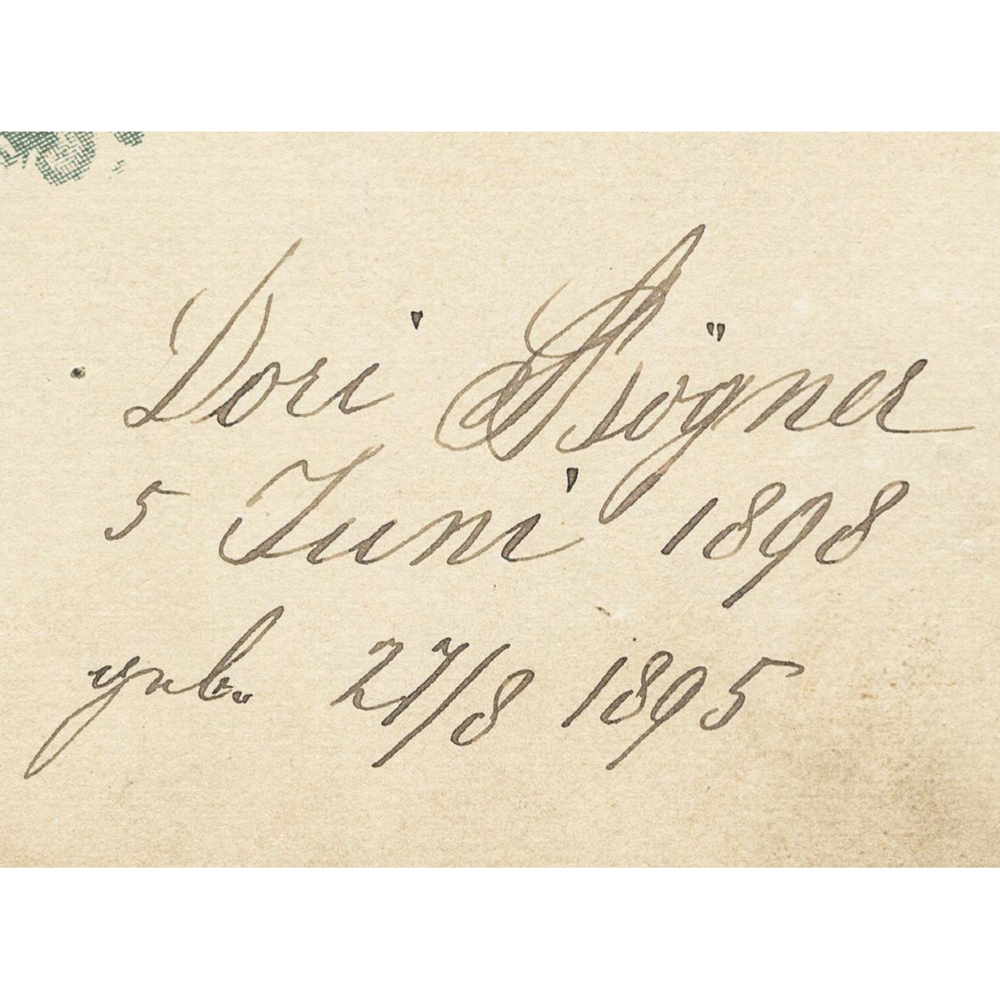 Dori Bögner
5 Juni 1898
geb. 27/8 1895